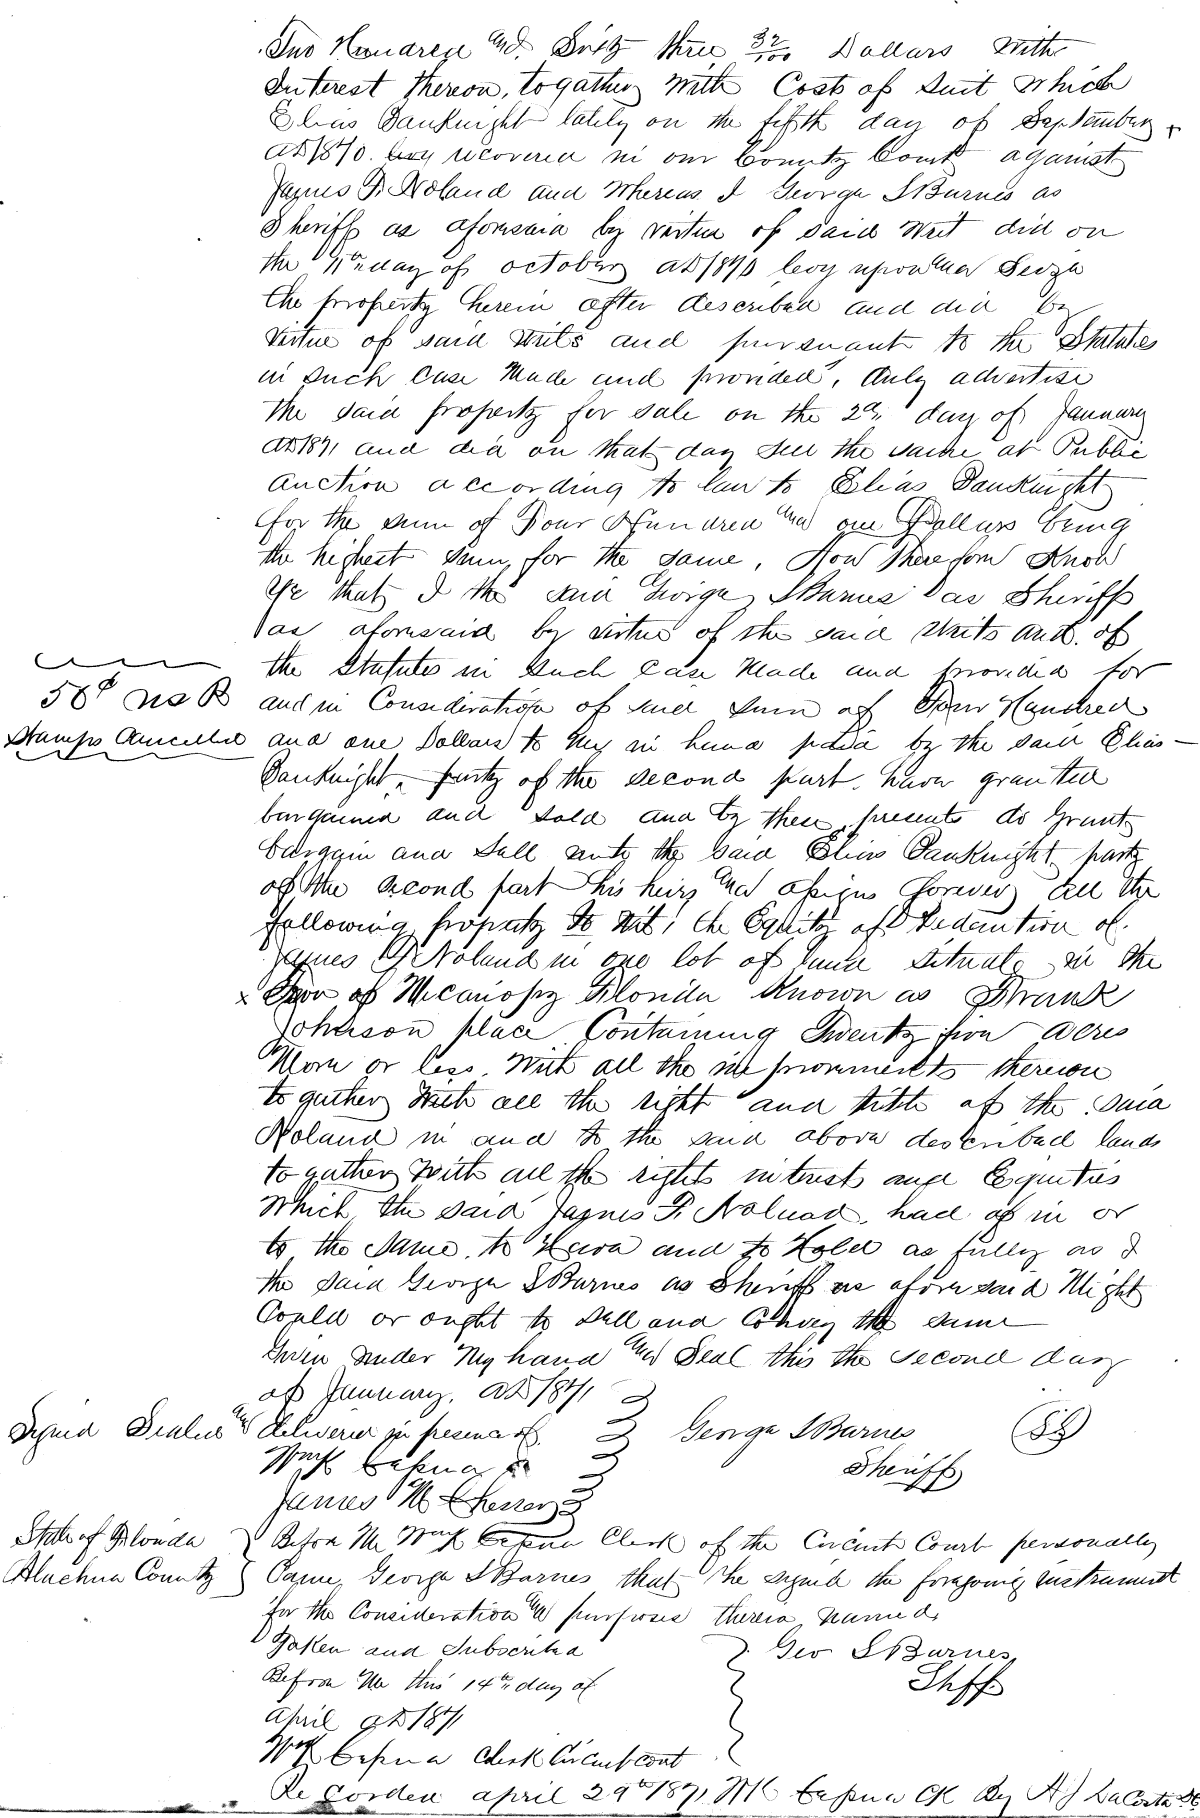 Two Hundred and Sixty three 32/100 Dollars With
Interest thereon, togather With Costs of Suit Which
Elias Bauknight lately on the fifth day of September
AD 1870. recovered in our County Court against
James F. Noland and Whereas I George S Barnes as
Sheriff as aforesaid by virtue of said Writ did on
the day of october AD 1870 levy upon and Seize
the property herein after described and did by
Virtue of said Writs and pursuant to the Statutes
in such case Made and provided, duly advertise
the said property for sale on the 2nd day of January
AD 1871 and did on that day sell the same at Public
auction according to law to Elias Bauknight
for the sum of Four Hundred and one Dollars being
the highest sum for the same, Now Therefore Know
Ye that I the said George S Barnes as Sheriff
as aforesaid by virtue of the said Writs and of
the Statutes in such case Made and provided for
50¢ USR and in Consideration of said sum of Four Hundred
Stamps Cancelled and one Dollars to My in hand paid by the said Elias
Bauknight, party of the second part, have granted
bargained and sold and by these presents do grant
bargain and sell unto the said Elias Bauknight party
of the second part his heirs and assigns forever all the
following property to Wit, the Equity of Redemtion of
James F Noland in one lot of land situate in the
x Town of Micanopy Florida Known as Frank
Johnson place Containing Twenty five acres
More or less. With all the improvements thereon
to gather With all the right and title of the said
Noland in and to the said above described lands
to gather With all the rights interest and Equities
Which the said James F. Noland, had of in or
to the same, to Have and to Hold as fully as I
the said George S Barnes as Sheriff as afore said Might
Could or ought to sell and Convey the same
Given under My hand and Seal this the second day
of January, AD 1871
Signed Sealed and delivered in presence of George S Barnes
Sheriff
James M Chesser
State of Florida Before Me Clerk of the Circuit Court personally
Alachua County Came George S Barnes that he signed the foregoing instrument
for the Consideration and purposes therein named.
Taken and Subscribed Geo S Barnes
Before Me this 14th day of Shff
April AD 1871
Clerk Circuit cout
Recorded april 29th 1871, CK By A J LaCosta